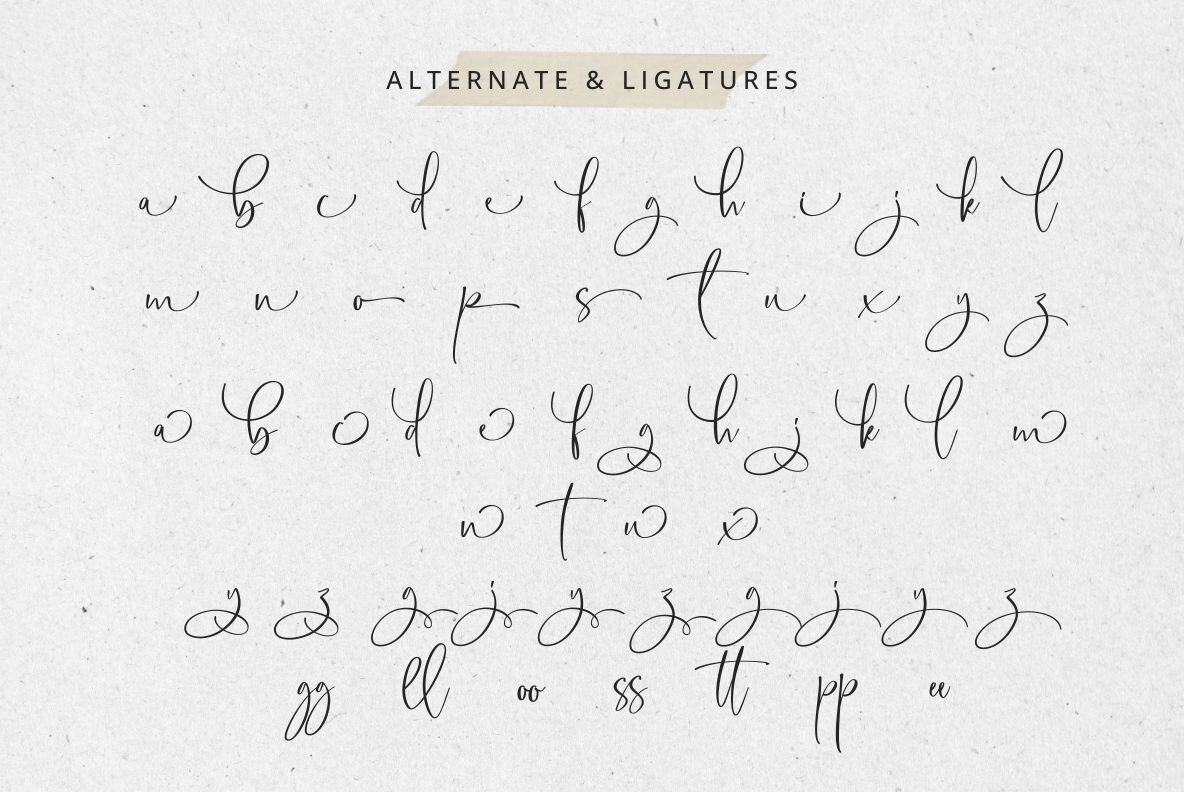 ALTERNATE & LIGATURES
a b c d e f g h i j k l
m n o p s t u x y z
a b c d e f g h j k l m
n t u x
y z g j y z g j y z
gg ll oo ss tt pp ee